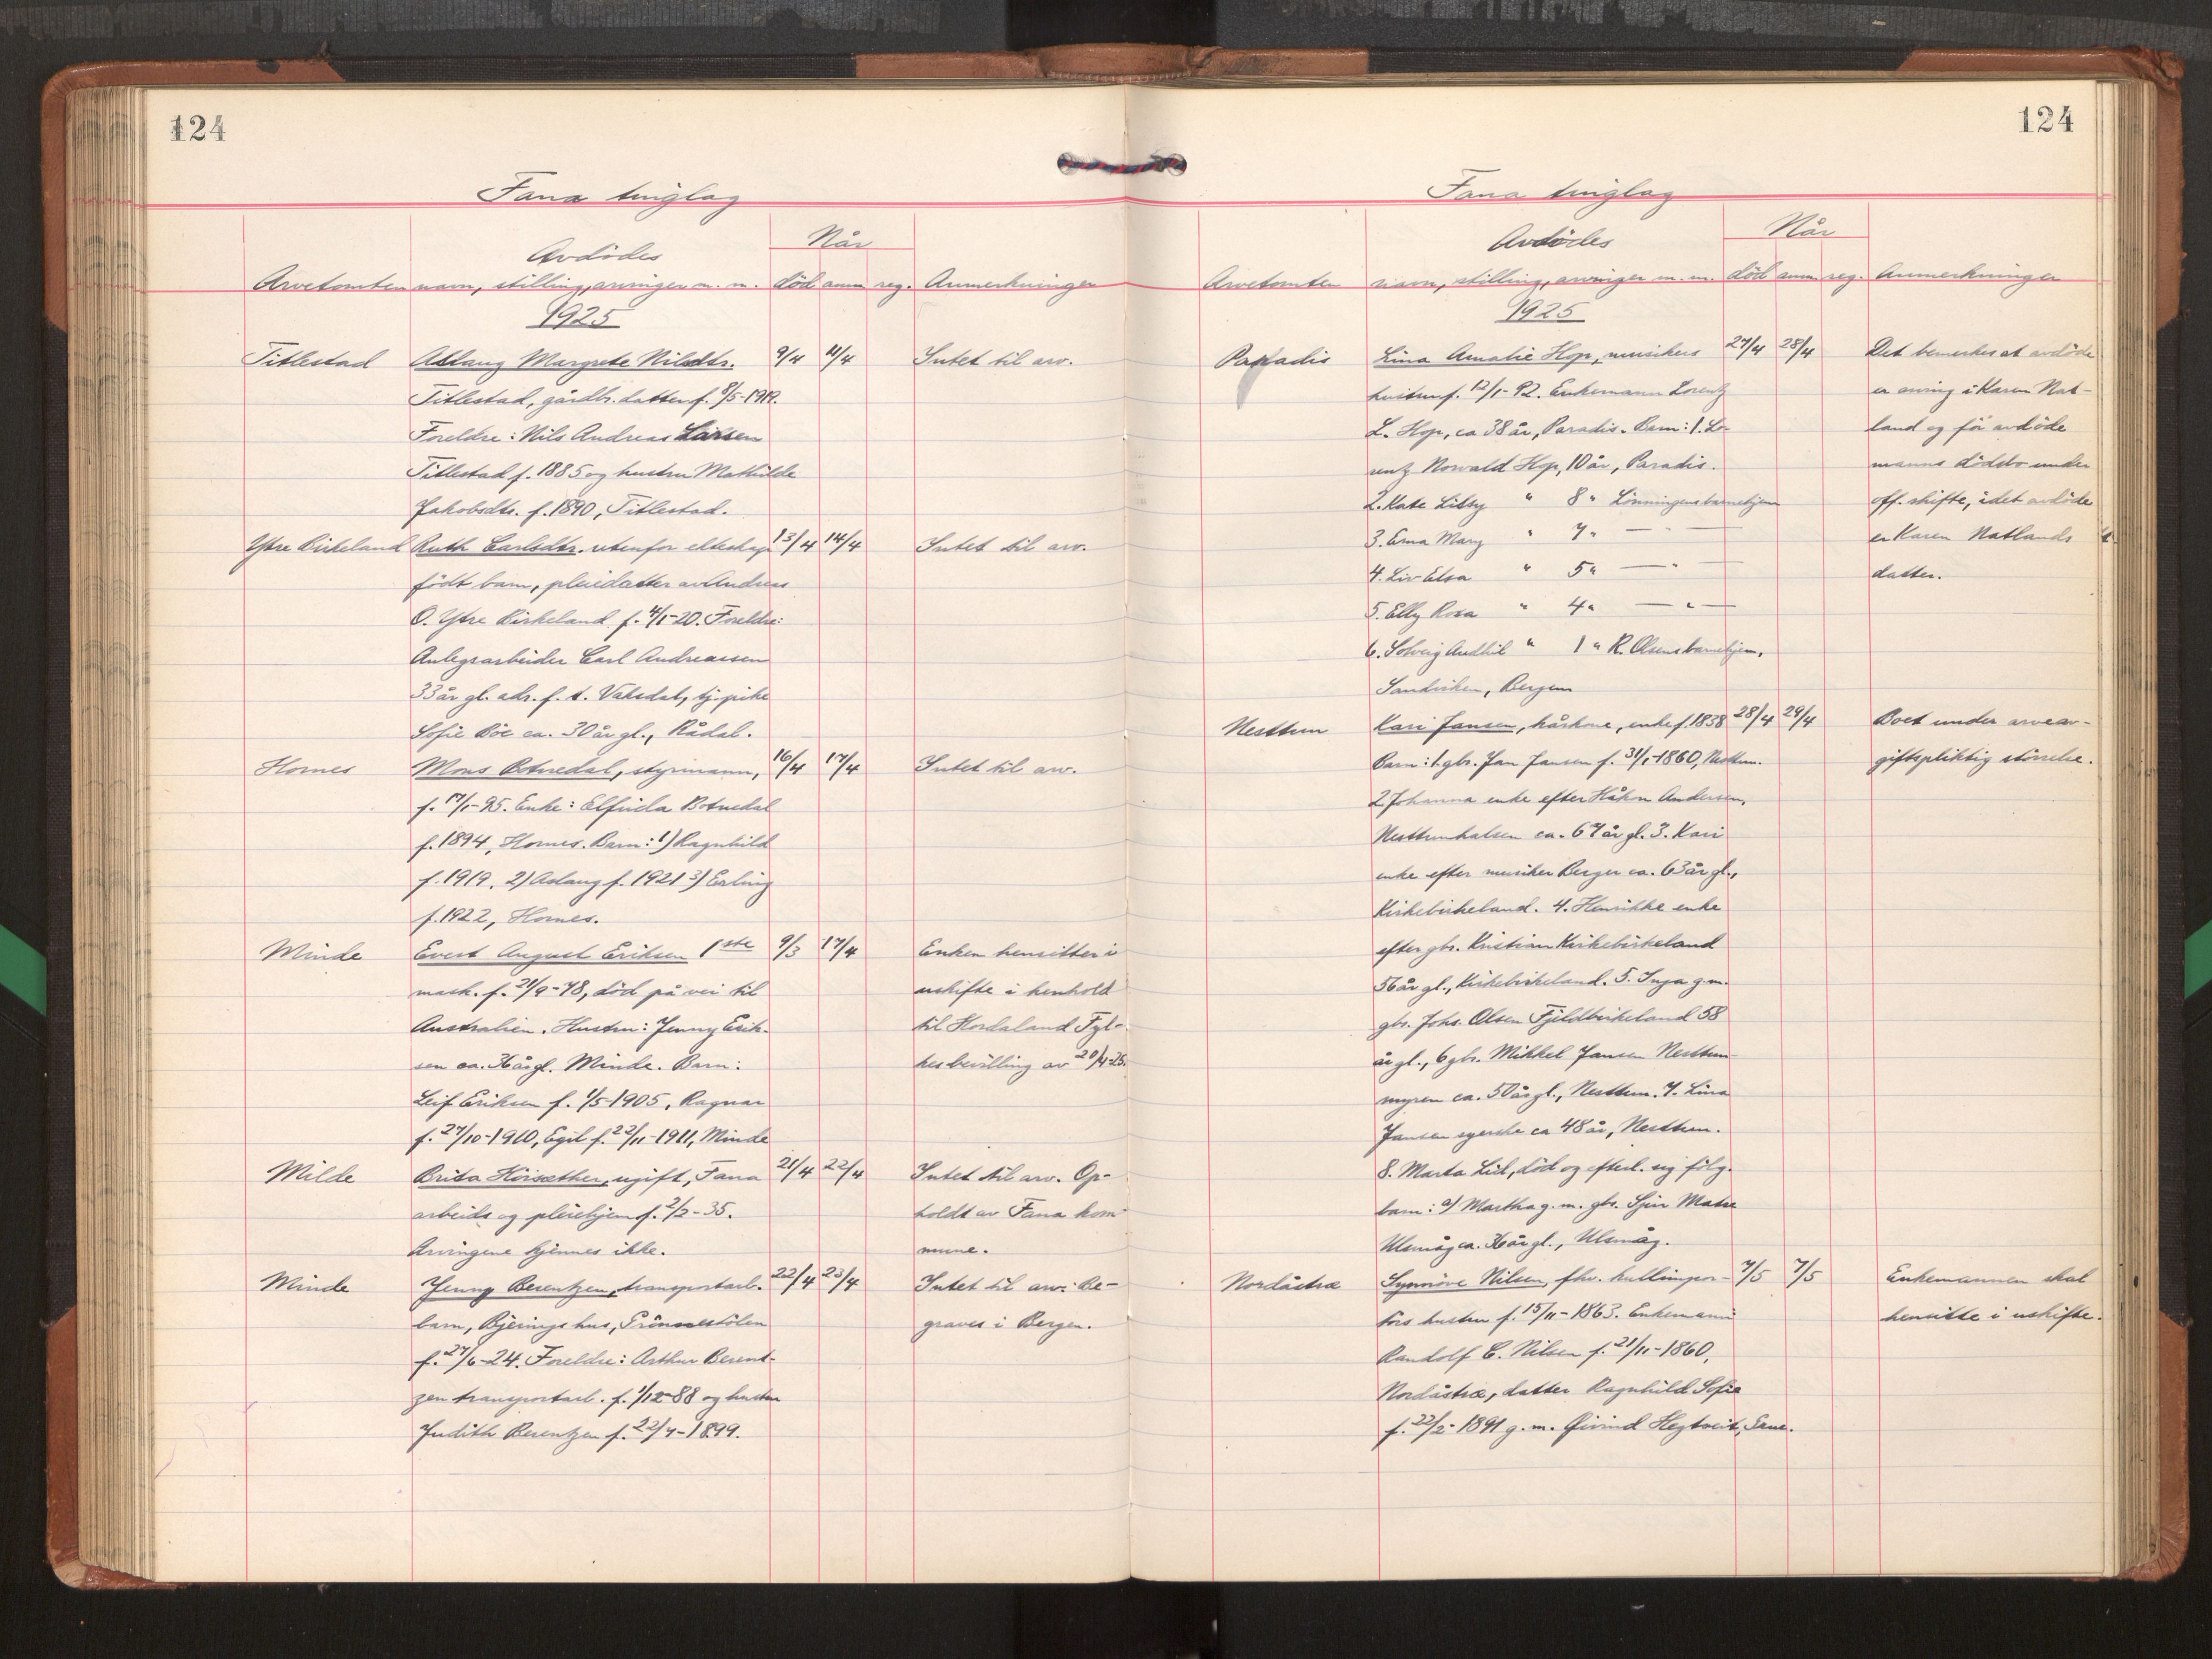 124
Fana tinglag
Avdödes
Når
Arvetomten navn, stilling, arvinger m. m. död anm reg. Anmerkninger
1925
Titlestad Aslaug Margrete Nilsdtr. 9/4 11/4 Intet til arv.
Titlestad, gårdbr. datter f. 8/5-1919.
Foreldre: Nils Andreas Larsen
Titlestad f. 1885 og hustru Mathilde
Jakobsdtr. f. 1890, Titlestad.
Ytre Birkeland Ruth Carlsdtr. utenfor ekteskap 13/4 14/4 Intet til arv.
födt barn, pleiedatter av Andreas
O. Ytre Birkeland f. 4/1-20. Foreldre:
Anlegsarbeider Carl Andreassen
33 år gl. adr. f. t. Vaksdal, tj. pike
Sofie Böe ca. 30 år gl., Rådal.
Hornes Mons Botnedal, styrmann, 16/4 17/4 Intet til arv.
f. 17/1-95. Enke: Elfrida Botnedal
f. 1894, Hornes. Barn: 1) Ragnhild
f. 1919. 2) Aslaug f. 1921 3) Erling
f. 1922, Hornes.
Minde Evert August Eriksen 1ste 9/3 17/4 Enken hensitter i
mask. f. 21/9-78, död på vei til uskifte i henhold
Australien. Hustru: Jenny Erik- til Hordaland Fyl-
sen ca. 36 år gl. Minde. Barn: kes bevilling av 20/4-25.
Leif Eriksen f. 1/5-1905, Ragnar
f. 27/10-1910, Egil f. 22/11-1911, Minde
Milde Brita Höisæther, ugift, Fana 21/4 22/4 Intet til arv. Op-
arbeids og pleiehjem f. 2/2-35. holdt av Fana kom-
Arvingene kjennes ikke. mune.
Minde Jenny Berentzen, transportarb. 22/4 23/4 Intet til arv. Be-
barn, Bjerings hus, Grönnestölen graves i Bergen.
f. 27/6-24. Foreldre: Arthur Berent-
zen transportarb. f. 1/12-88 og hustru
Judith Berentzen f. 22/7-1899.
124
Fana tinglag
Avdödes
Når
Arvetomten navn, stilling, arvinger m. m. död anm reg. Anmerkninger
1925
Paradis Lina Amalie Hop, musikers 27/4 28/4 Det bemerkes at avdöde
hustru f. 12/1-92. Enkemann Lorentz er arving i Karen Nat-
L. Hop, ca 38 år, Paradis. Barn: 1. Lo- land og för avdöde
rentz Norvald Hop, 10 år, Paradis. manns dödsbo under
2. Kate Libsy " 8 " Lönningens barnehjem off. skifte, idet avdöde
3. Erna Mary " 7 " — " — er Karen Natlands
4. Liv Elsa " 5 " — " — datter.
5. Elly Rosa " 4 " — " —
6. Solveig Audhil " 1 " R. Olsens barnehjem,
Sandviken, Bergen
Nesttun Kari Jansen, kårkone, enke f. 1838 28/4 29/4 Boet under arveav-
Barn: 1. gbr. Jan Jansen f. 31/1-1860, Nesttun. giftspliktig störrelse.
2. Johanna enke efter Håkon Andersen,
Nesttunhalsen ca. 67 år gl. 3. Kari
enke efter musiker Berger ca. 63 år gl.,
Kirkebirkeland. 4. Henrikke enke
efter gbr. Kristian Kirkebirkeland
56 år gl., Kirkebirkeland. 5. Inga g.m.
gbr. Johs. Olsen Fjeldbirkeland 58
år gl., 6 gbr. Mikkel Jansen Nesttun-
myren ca. 50 år gl., Nesttun. 7. Lina
Jansen syerske ca 48 år, Nesttun.
8. Marta Lid, död og efterl. sig fölg.
barn: a) Martha g. m. gbr. Sjur Matre
Ulsmåg ca. 36 år gl., Ulsmåg.
Nordåstræ Synnöve Nilsen, fhv. kullimpor- 7/5 7/5 Enkemannen skal
törs hustru f. 15/11-1863. Enkemann hensitte i uskifte.
Randolf C. Nilsen f. 21/11-1860,
Nordåstræ, datter Ragnhild Sofie
f. 22/2-1891 g. m. Øivind Hegtveit,